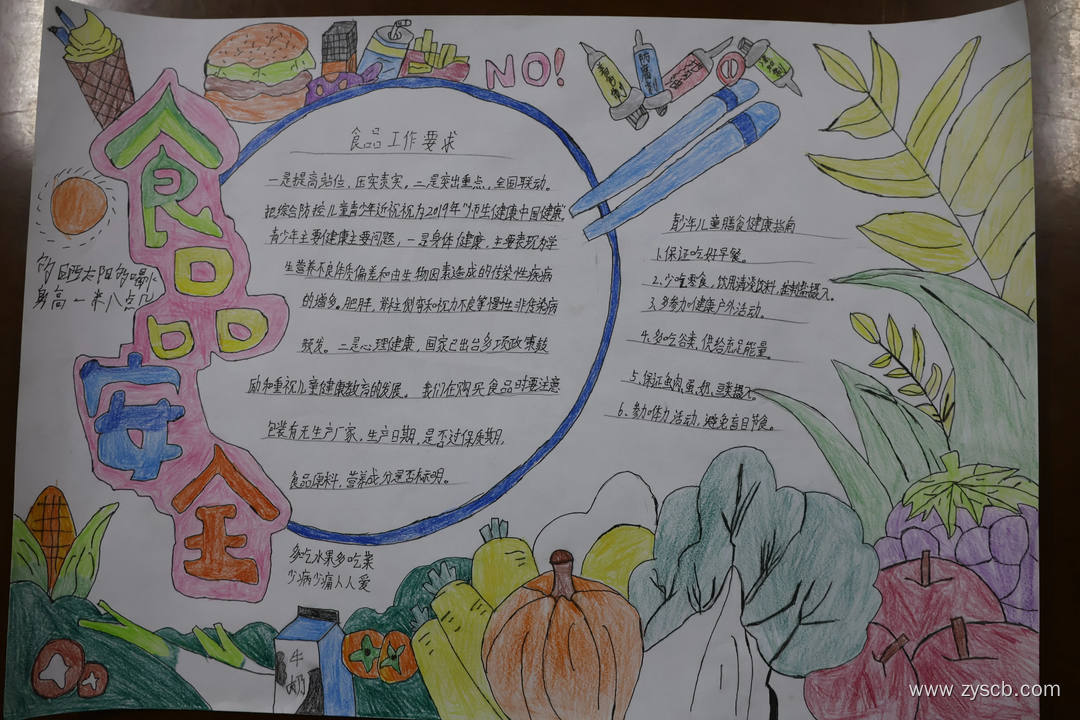 食品安全
NO!
食品工作要求
一是提高站位,压实责实。二是突出重点,全国联动。
把综合防控儿童青少年近视视为2019年"卫生健康中国健康"
青少年主要健康主要问题,一是身体健康,主要表现为学
生营养不良体质偏差和由生物因素造成的传染性疾病
的增多。肥胖,脊柱侧弯和视力不良等慢性非传染病
频发。二是心理健康,国家已出台多项政策鼓
励和重视儿童健康教育的发展。我们在购买食品时要注意
包装有无生产厂家,生产日期,是否过保质期,
食品原料,营养成分是否标明。
青少年儿童膳食健康指南
1.保证吃好早餐。
2.少吃零食,饮用清淡饮料,控制糖摄入。
3.多参加健康户外活动。
4.多吃谷类,供给充足能量。
5.保证鱼,肉,蛋,奶,豆类摄入。
6.参加体力活动,避免盲目节食。
身高一米八点几
多吃水果多吃菜
少病少痛人人爱
牛奶
www.zyscb.com